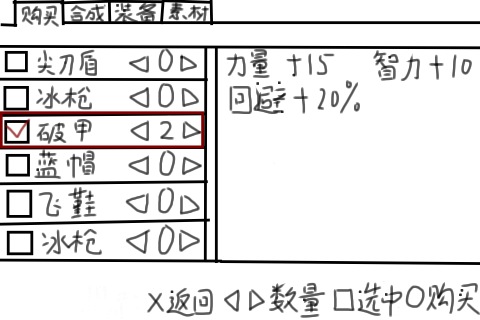 购买 合成 装备 素材
尖刀盾 ◁0▷
冰枪 ◁0▷
破甲 ◁2▷
蓝帽 ◁0▷
飞鞋 ◁0▷
冰枪 ◁0▷
力量 +15 智力+10
回避+20%
X返回 ◁▷数量 □选中○购买